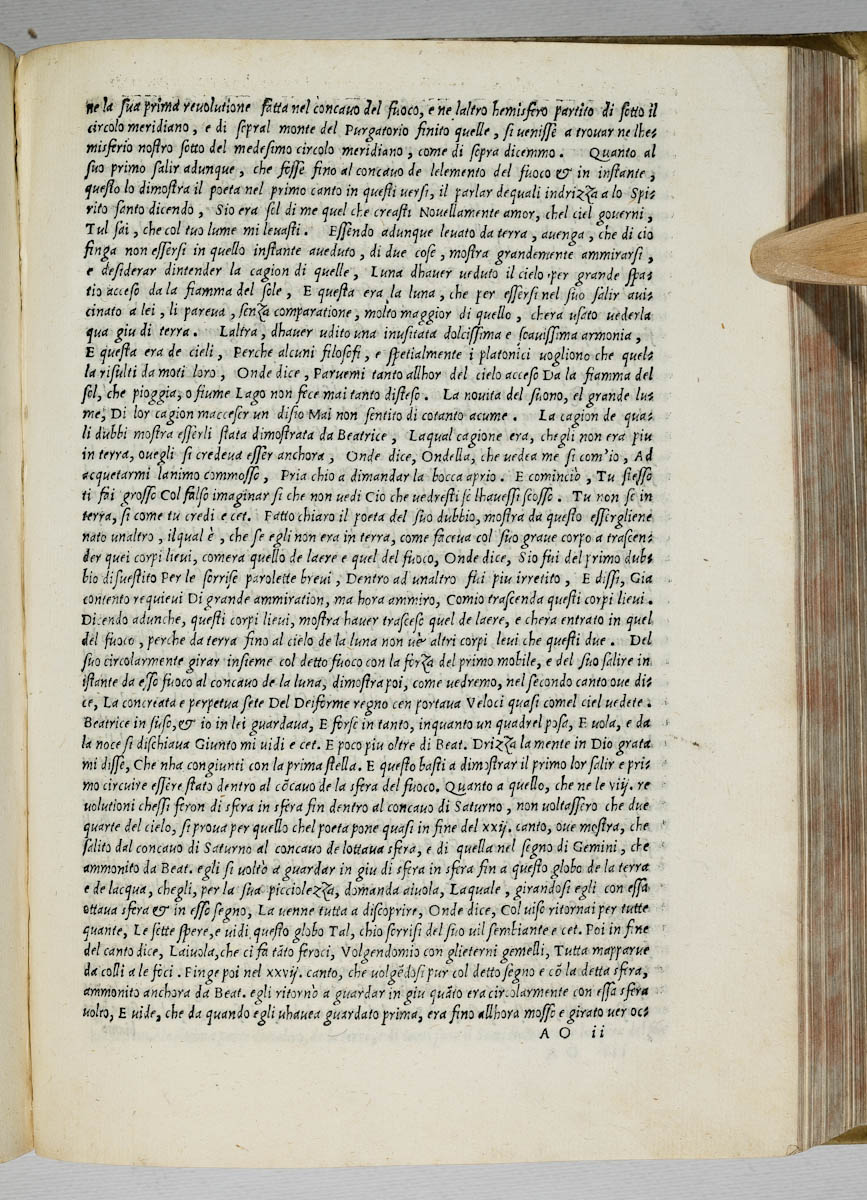 ne la sua prima reuolutione fatta nel concauo del fuoco, e ne laltro hemisfero partito di sotto il
circolo meridiano, e di sopral monte del Purgatorio finito quelle, si uenisse a trouar ne lhe⸗
misferio nostro sotto del medesimo circolo meridiano, come di sopra dicemmo. Quanto al
suo primo salir adunque, che fosse fino al concauo de lelemento del fuoco & in instante,
questo lo dimostra il poeta nel primo canto in questi uersi, il parlar dequali indrizza a lo Spi⸗
rito santo dicendo, Sio era sol di me quel che creasti Nouellamente amor, chel ciel gouerni,
Tul sai, che col tuo lume mi leuasti. Essendo adunque leuato da terra, auenga, che di cio
finga non essersi in quello instante aueduto, di due cose, mostra grandemente ammirarsi,
e desiderar dintender la cagion di quelle, Luna dhauer ueduto il cielo per grande spa⸗
tio acceso da la fiamma del sole, E questa era la luna, che per essersi nel suo salir aui⸗
cinato a lei, li pareua, senza comparatione, molto maggior di quello, chera usato uederla
qua giu di terra. Laltra, dhauer udito una inusitata dolcissima e soauissima armonia,
E questa era de cieli, Perche alcuni filosofi, e spetialmente i platonici uogliono che quel⸗
la risulti da moti loro, Onde dice, Paruemi tanto allhor del cielo acceso Da la fiamma del
sol, che pioggia, o fiume Lago non fece mai tanto disteso. La nouita del suono, el grande lu⸗
me, Di lor cagion macceser un disio Mai non sentito di cotanto acume. La cagion de qua⸗
li dubbi mostra esserli stata dimostrata da Beatrice, Laqual cagione era, chegli non era piu
in terra, ouegli si credeua esser anchora, Onde dice, Ondella, che uedea me si com'io, Ad
acquetarmi lanimo commosso, Pria chio a dimandar la bocca aprio. E cominciò, Tu stesso
ti fai grosso Col falso imaginar si che non uedi Cio che uedresti se lhauessi scosso. Tu non se in
terra, si come tu credi e cet. Fatto chiaro il poeta del suo dubbio, mostra da questo essergliene
nato unaltro, ilqual è, che se egli non era in terra, come faceua col suo graue corpo a trascen⸗
der quei corpi lieui, comera quello de laere e quel del fuoco, Onde dice, Sio fui del primo dub⸗
bio disuestito Per le sorrise parolette breui, Dentro ad unaltro fui piu irretito, E dissi, Gia
contento requieui Di grande ammiration, ma hora ammiro, Comio trascenda questi corpi lieui.
Dicendo adunche, questi corpi lieui, mostra hauer trasceso quel de laere, e chera entrato in quel
del fuoco, perche da terra fino al cielo de la luna non ue altri corpi leui che questi due. Del
suo circolarmente girar insieme col detto fuoco con la forza del primo mobile, e del suo salire in
istante da esso fuoco al concauo de la luna, dimostra poi, come uedremo, nel secondo canto oue di⸗
ce, La concreata e perpetua sete Del Deiforme regno cen portaua Veloci quasi comel ciel uedete.
Beatrice in suso, & io in lei guardaua, E forse in tanto, inquanto un quadrel posa, E uola, e da
la noce si dischiaua Giunto mi uidi e cet. E poco piu oltre di Beat. Drizza la mente in Dio grata
mi disse, Che nha congiunti con la prima stella. E questo basti a dimostrar il primo lor salir e pri⸗
mo circuire essere stato dentro al cōcauo de la sfera del fuoco. Quanto a quello, che ne le vij. re
uolutioni chessi feron di sfera in sfera fin dentro al concauo di Saturno, non uoltassero che due
quarte del cielo, si proua per quello chel poeta pone quasi in fine del xxij. canto, oue mostra, che
salito dal concauo di Saturno al concauo de lottaua sfera, e di quella nel segno di Gemini, che
ammonito da Beat. egli si uoltò a guardar in giu di sfera in sfera fin a questo globo de la terra
e de lacqua, chegli, per la sua picciolezza, domanda aiuola, Laquale, girandosi egli con essa
ottaua sfera & in esso segno, La uenne tutta a discoprire, Onde dice, Col uiso ritornai per tutte
quante, Le sette spere, e uidi questo globo Tal, chio sorrisi del suo uil sembiante e cet. Poi in fine
del canto dice, Laiuola, che ci fa tāto feroci, Volgendomio con glieterni gemelli, Tutta mapparue
da colli a le foci. Finge poi nel xxvij. canto, che uolgēdosi pur col detto segno e cō la detta sfera,
ammonito anchora da Beat. egli ritornò a guardar in giu quāto era circolarmente con essa sfera
uolto, E uide, che da quando egli uhauea guardato prima, era fino allhora mosso e girato uer oc⸗
A O ii